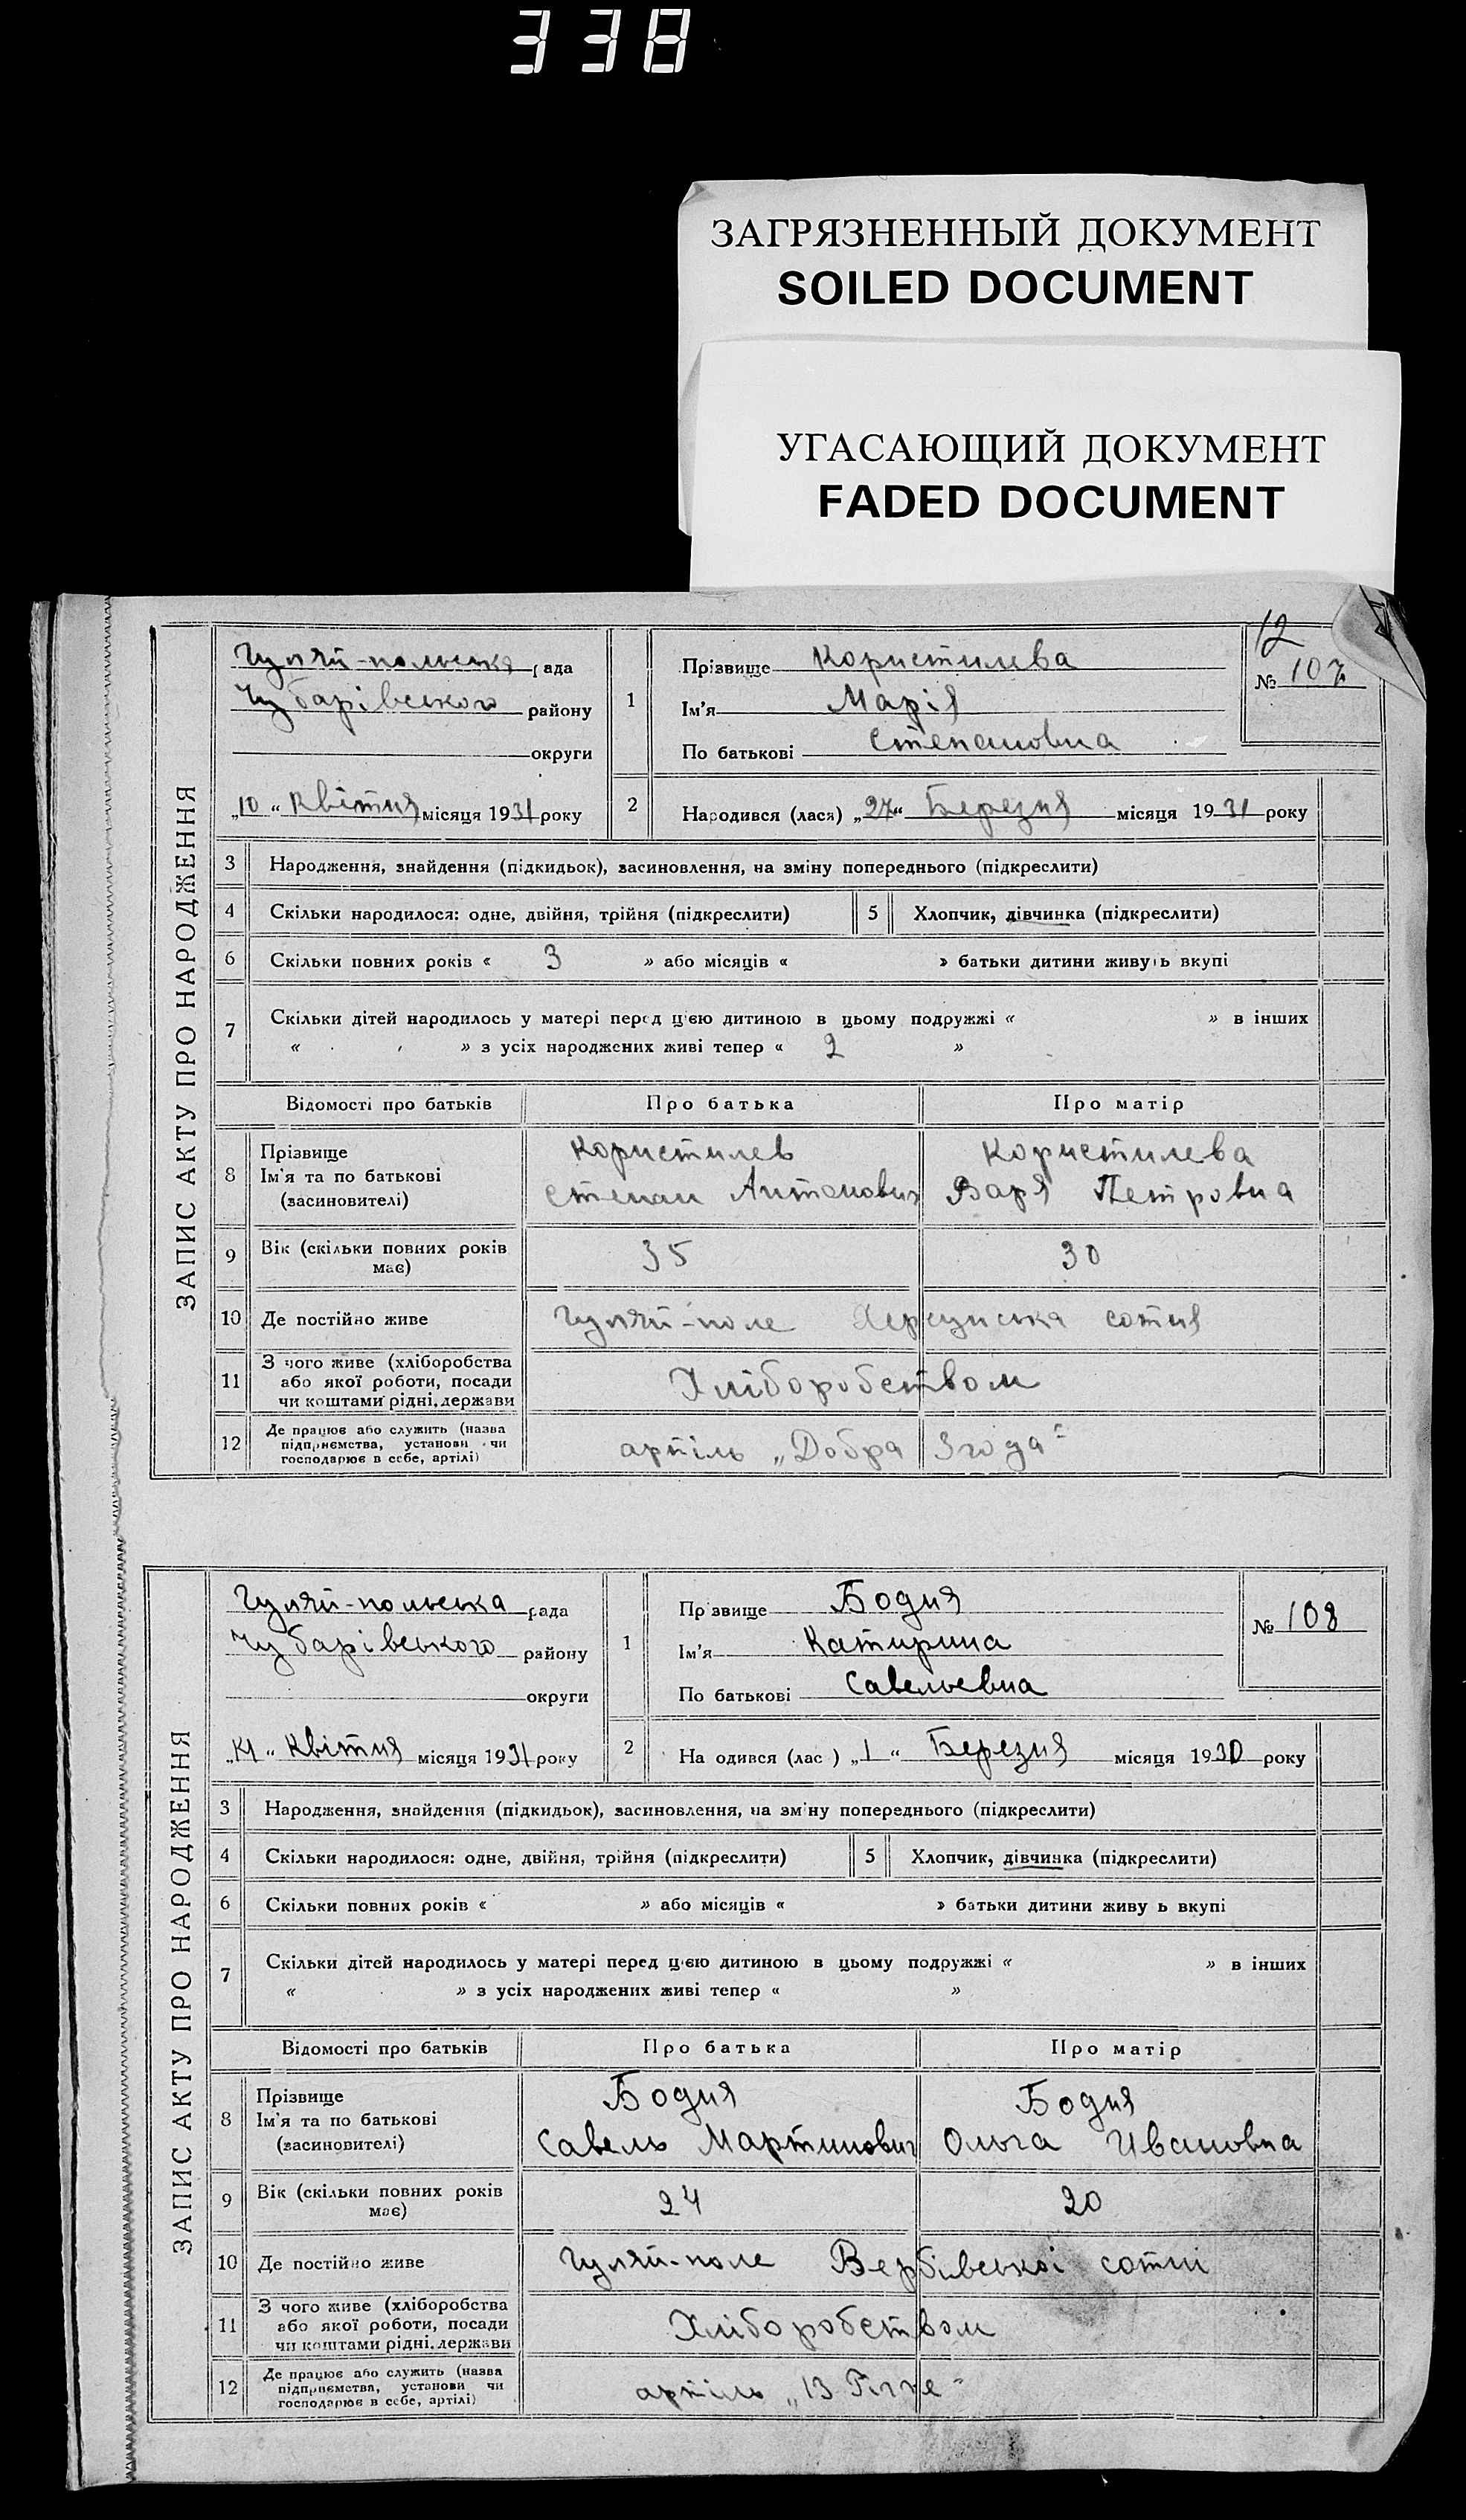 338
ЗАГРЯЗНЕННЫЙ ДОКУМЕНТ
SOILED DOCUMENT
УГАСАЮЩИЙ ДОКУМЕНТ
FADED DOCUMENT
12
ЗАПИС АКТУ ПРО НАРОДЖЕННЯ
Гуляй-польська рада
Чубарівського району
округи
„10“ Квітня місяця 1931 року
1
Прізвище Користилева
Ім'я Марія
По батькові Степановна
№ 107
2 Народився (лася) „27“ Березня місяця 1931 року
3 Народження, знайдення (підкидьок), засиновлення, на зміну попереднього (підкреслити)
4 Скільки народилося: одне, двійня, трійня (підкреслити) 5 Хлопчик, дівчинка (підкреслити)
6 Скільки повних років « 3 » або місяців « » батьки дитини живуть вкупі
7 Скільки дітей народилось у матері перед цією дитиною в цьому подружжі « » в інших
« » з усіх народжених живі тепер « 2 »
Відомості про батьків Про батька Про матір
8 Прізвище Користилев Користилева
Ім'я та по батькові Степан Антонович Варя Петровна
(засиновителі)
9 Вік (скільки повних років має) 35 30
10 Де постійно живе Гуляй-поле Херсунська сотня
11 З чого живе (хліборобства
або якої роботи, посади
чи коштами рідні, держави Хліборобством
12 Де працює або служить (назва
підприємства, установи чи
господарює в себе, артілі) артіль „Добра Згода“
ЗАПИС АКТУ ПРО НАРОДЖЕННЯ
Гуляй-польська рада
Чубарівського району
округи
Квітня місяця 1931 року
1
Прзвище Бодня
Ім'я Катирина
По батькові Савельевна
№ 108
2 На одився (лас ) „1“ Березня місяця 1930 року
3 Народження, знайдення (підкидьок), засиновлення, на зміну попереднього (підкреслити)
4 Скільки народилося: одне, двійня, трійня (підкреслити) 5 Хлопчик, дівчинка (підкреслити)
6 Скільки повних років « » або місяців « » батьки дитини живу ь вкупі
7 Скільки дітей народилось у матері перед цією дитиною в цьому подружжі « » в інших
« » з усіх народжених живі тепер « »
Відомості про батьків Про батька Про матір
8 Прізвище Бодня Бодня
Ім'я та по батькові Савель Мартинович Ольга Ивановна
(засиновителі)
9 Вік (скільки повних років має) 24 20
10 Де постійно живе Гуляй-поле Вербівської сотні
11 З чого живе (хліборобства
або якої роботи, посади
чи коштами рідні, держави Хліборобством
12 Де працює або служить (назва
підприємства, установи чи
господарює в себе, артілі) артіль „13 Річче“